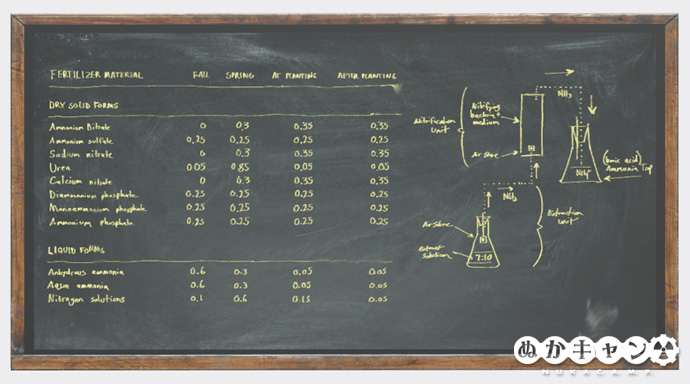 FERTILIZER MATERIAL FALL SPRING AT PLANTING AFTER PLANTING
DRY SOLID FORMS
Ammonium Nitrate 0 0.3 0.35 0.35
Ammonium sulfate 0.25 0.25 0.25 0.25
Sodium nitrate 0 0.3 0.35 0.35
Urea 0.05 0.85 0.05 0.05
Calcium nitrate 0 0.3 0.35 0.35
Diammonium phosphate 0.25 0.25 0.25 0.25
Monoammonium phosphate 0.25 0.25 0.25 0.25
Ammonium phosphate 0.25 0.25 0.25 0.25
LIQUID FORMS
Anhydrous ammonia 0.6 0.3 0.05 0.05
Aqua ammonia 0.6 0.3 0.05 0.05
Nitrogen solutions 0.1 0.6 0.15 0.05
NH3
Nitrifying
bacteria +
medium
Nitrification
Unit
Air Stone
(Boric acid)
Ammonia Trap
NH3
Extraction
unit
Air Stone
extract
solution
7:10
ぬかキャン
NUKACAMP